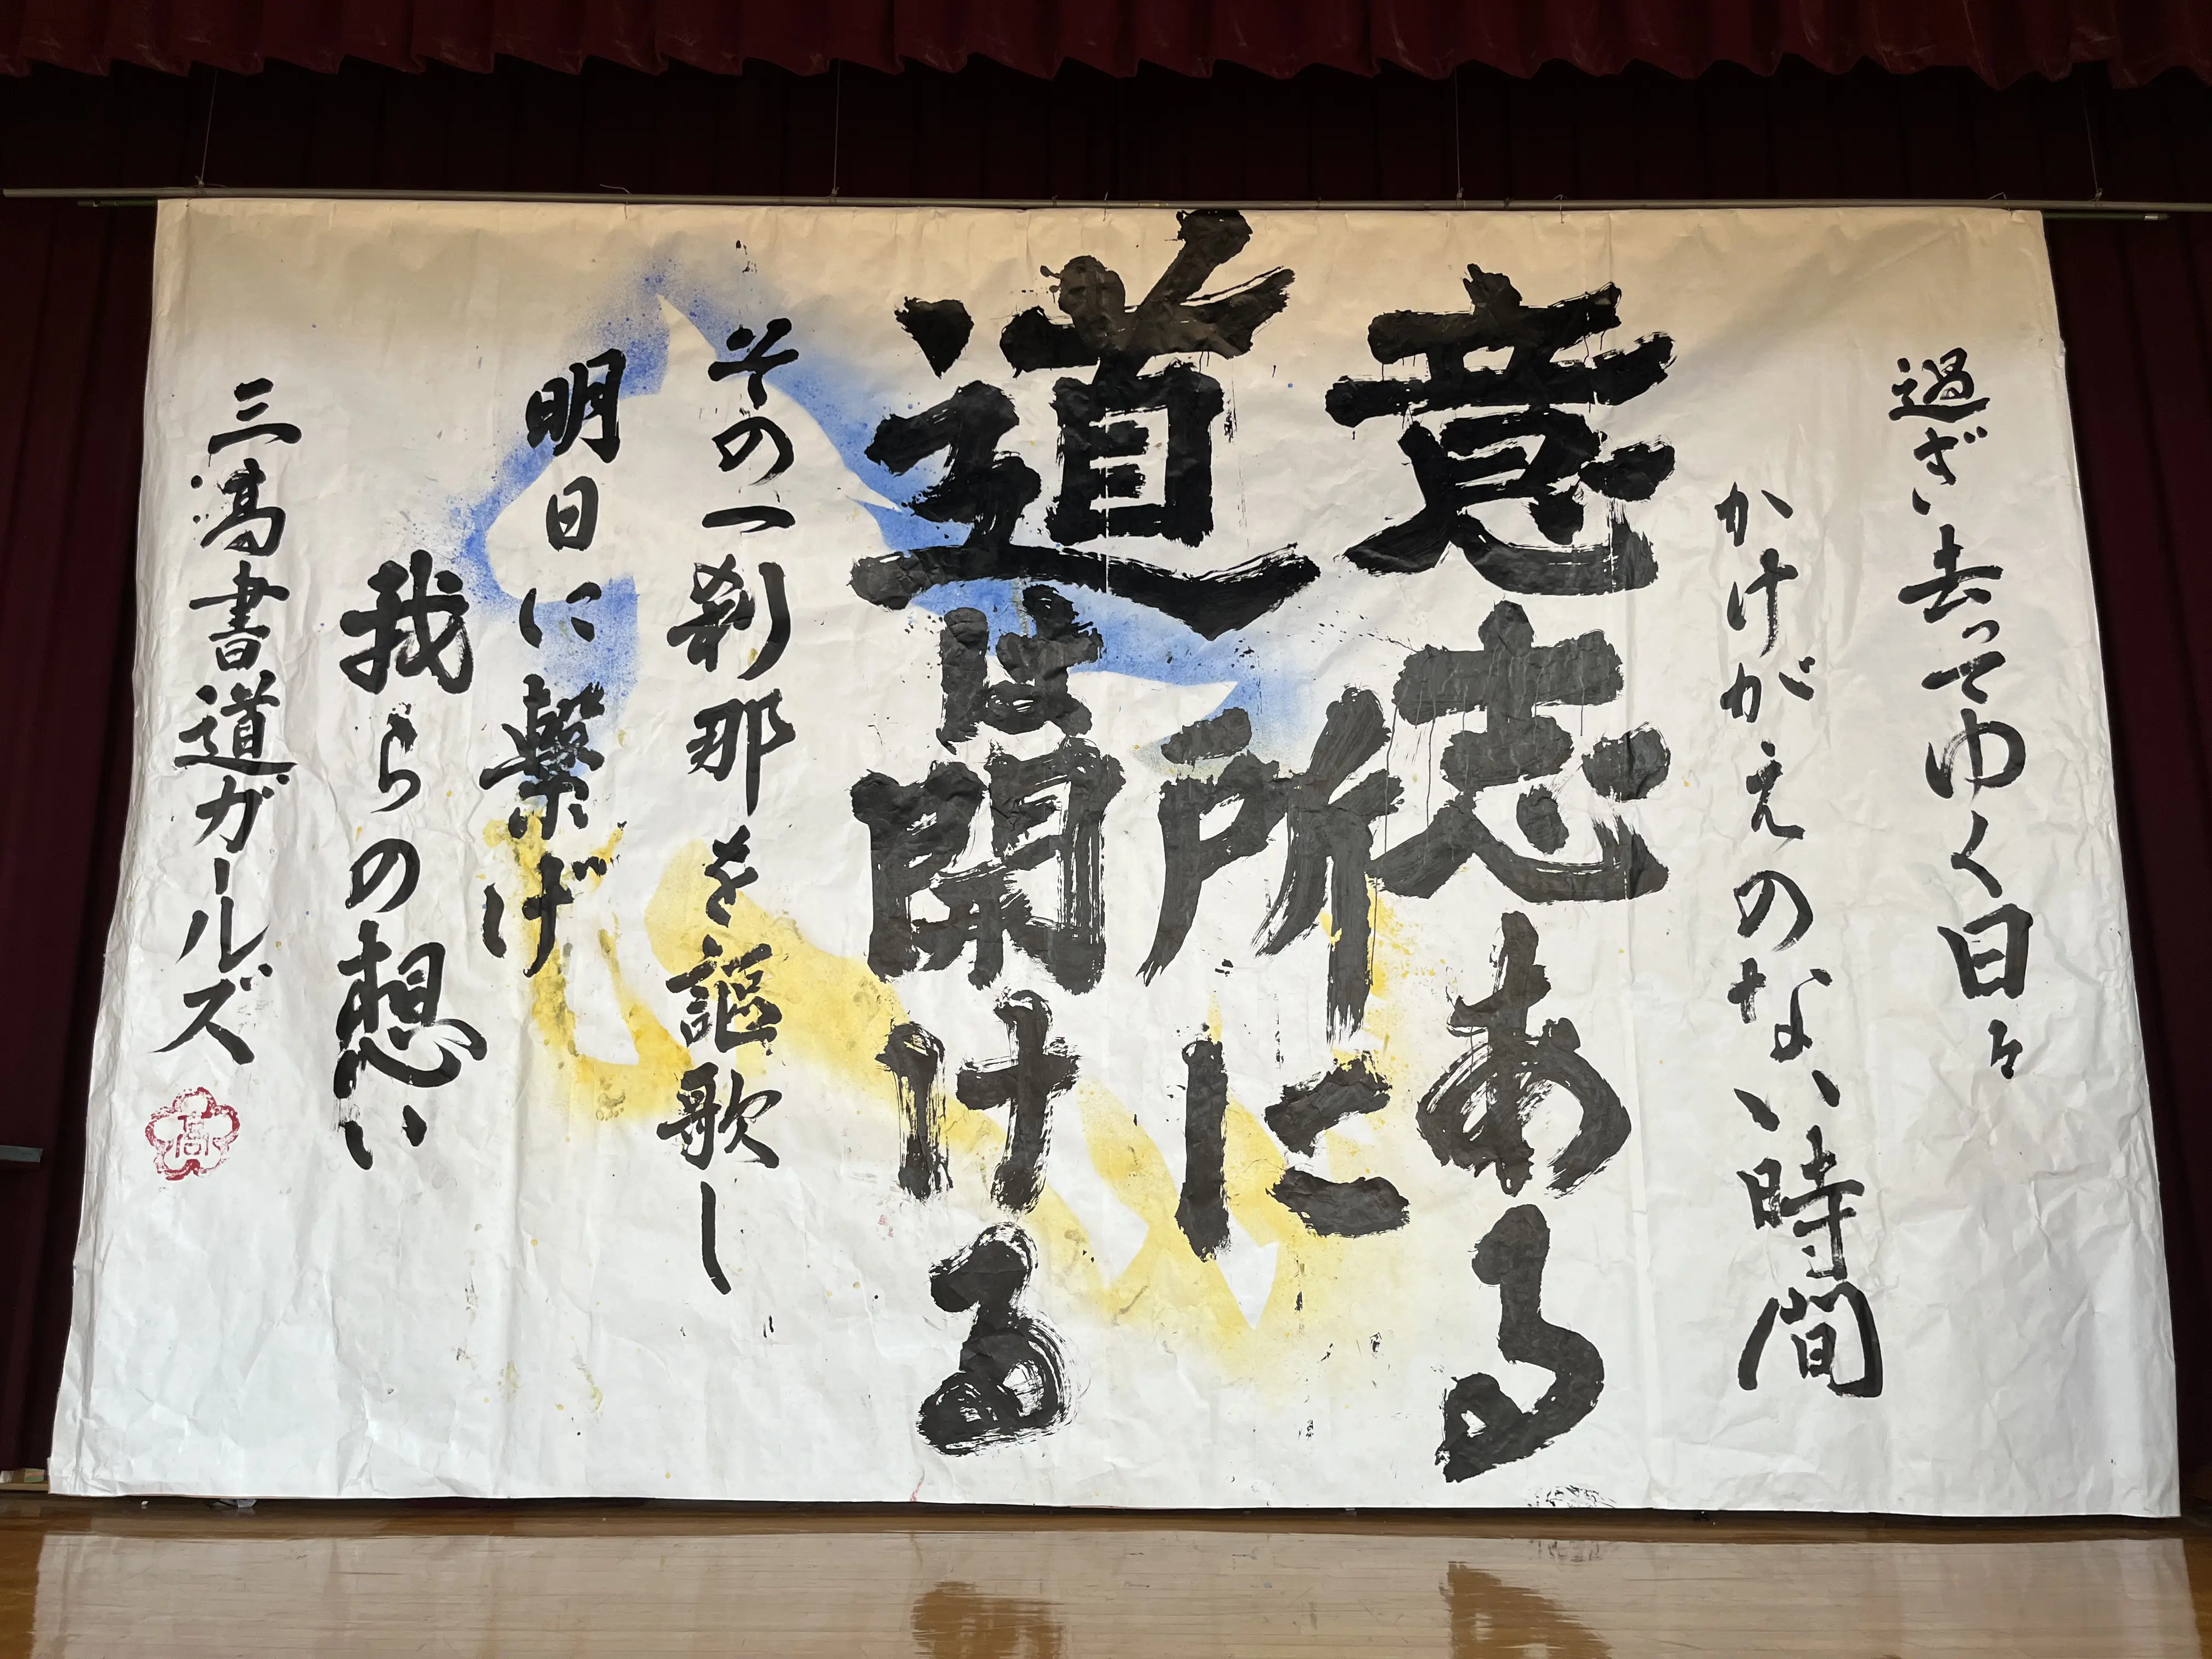 過ぎ去ってゆく日々
かけがえのない時間
意志ある
所に
道は開ける
その一刹那を謳歌し
明日に繋げ
我らの想い
三高書道ガールズ
高